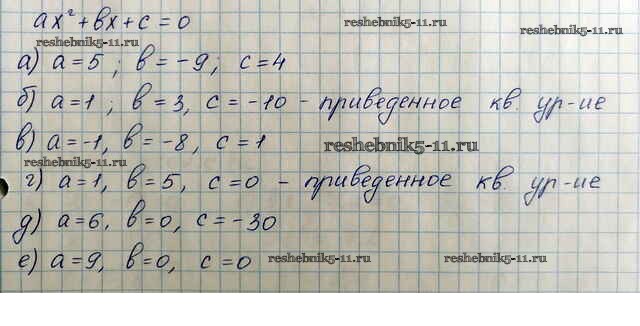 ax² + bx + c = 0
reshebnik5-11.ru
reshebnik5-11.ru
reshebnik5-11.ru
а) a = 5 ; b = -9; c = 4
б) a = 1 ; b = 3, c = -10 - приведенное кв. ур-ие
в) a = -1, b = -8, c = 1
reshebnik5-11.ru
reshebnik5-11.ru
г) a = 1, b = 5, c = 0 - приведенное кв. ур-ие
д) a = 6, b = 0, c = -30
е) a = 9, b = 0, c = 0
reshebnik5-11.ru
reshebnik5-11.ru